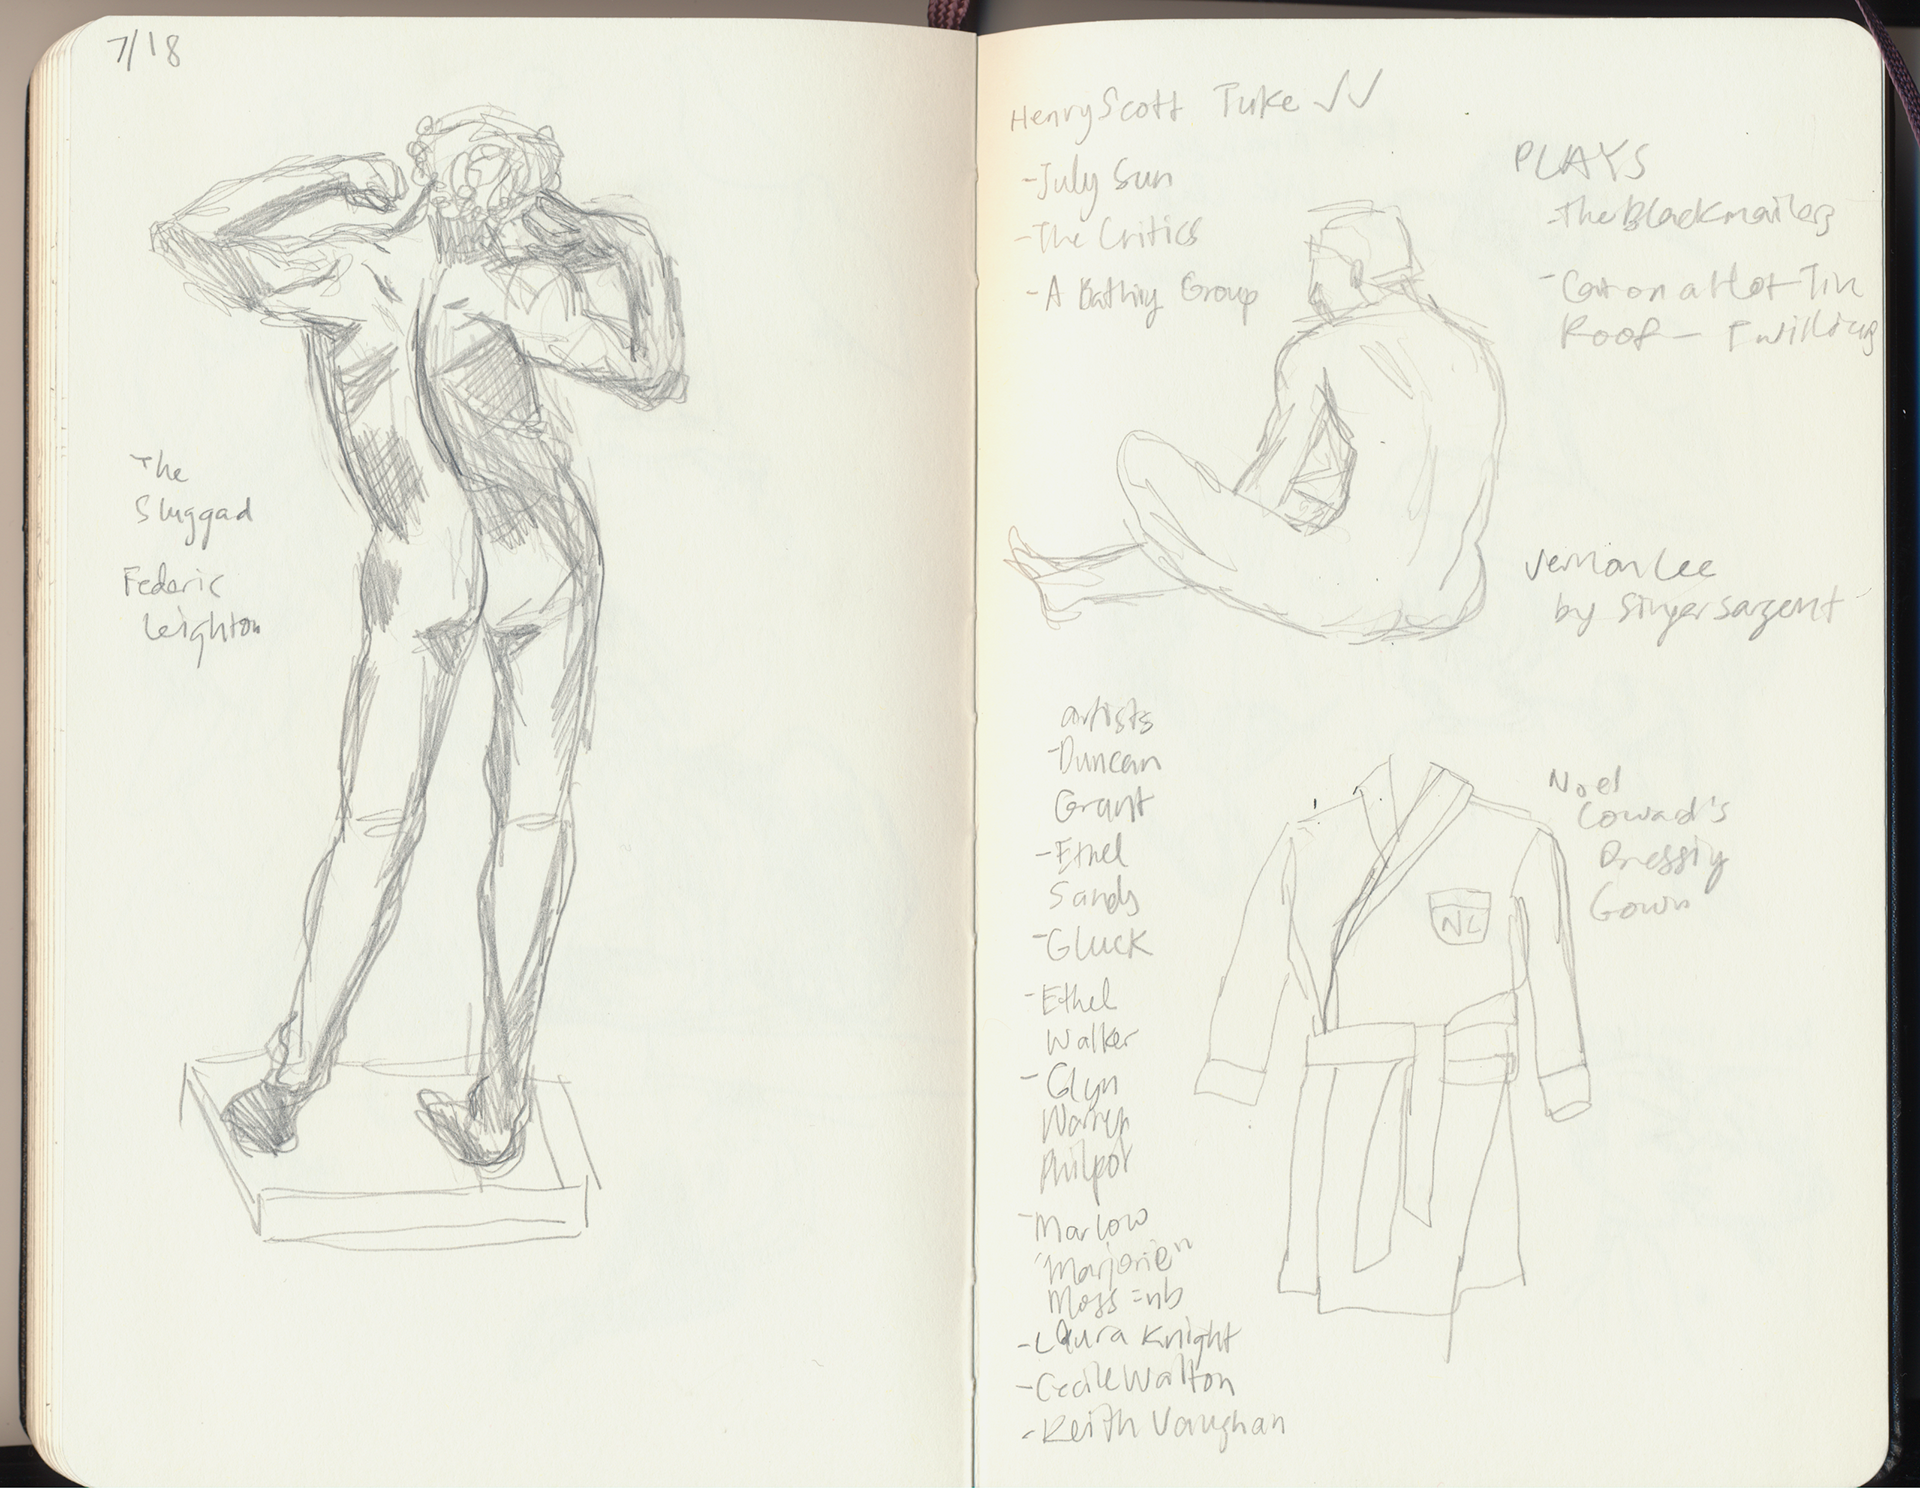 7/18
The
Sluggad
Federic
Leighton
Henry Scott Tuke ✓✓
- July Sun
- The Critics
- A Bathing Group
PLAYS
- The Blackmailers
- Cat on a Hot Tin
Roof -
Vernon Lee
by Singer Sargent
artists
- Duncan
Grant
- Ethel
Sands
- Gluck
- Ethel
Walker
- Glyn
Warren
Philpot
- Marlow
"Marjorie"
Moss = nb
- Laura Knight
- Cecile Walton
- Keith Vaughan
Noel
Coward's
Dressing
Gown
NC